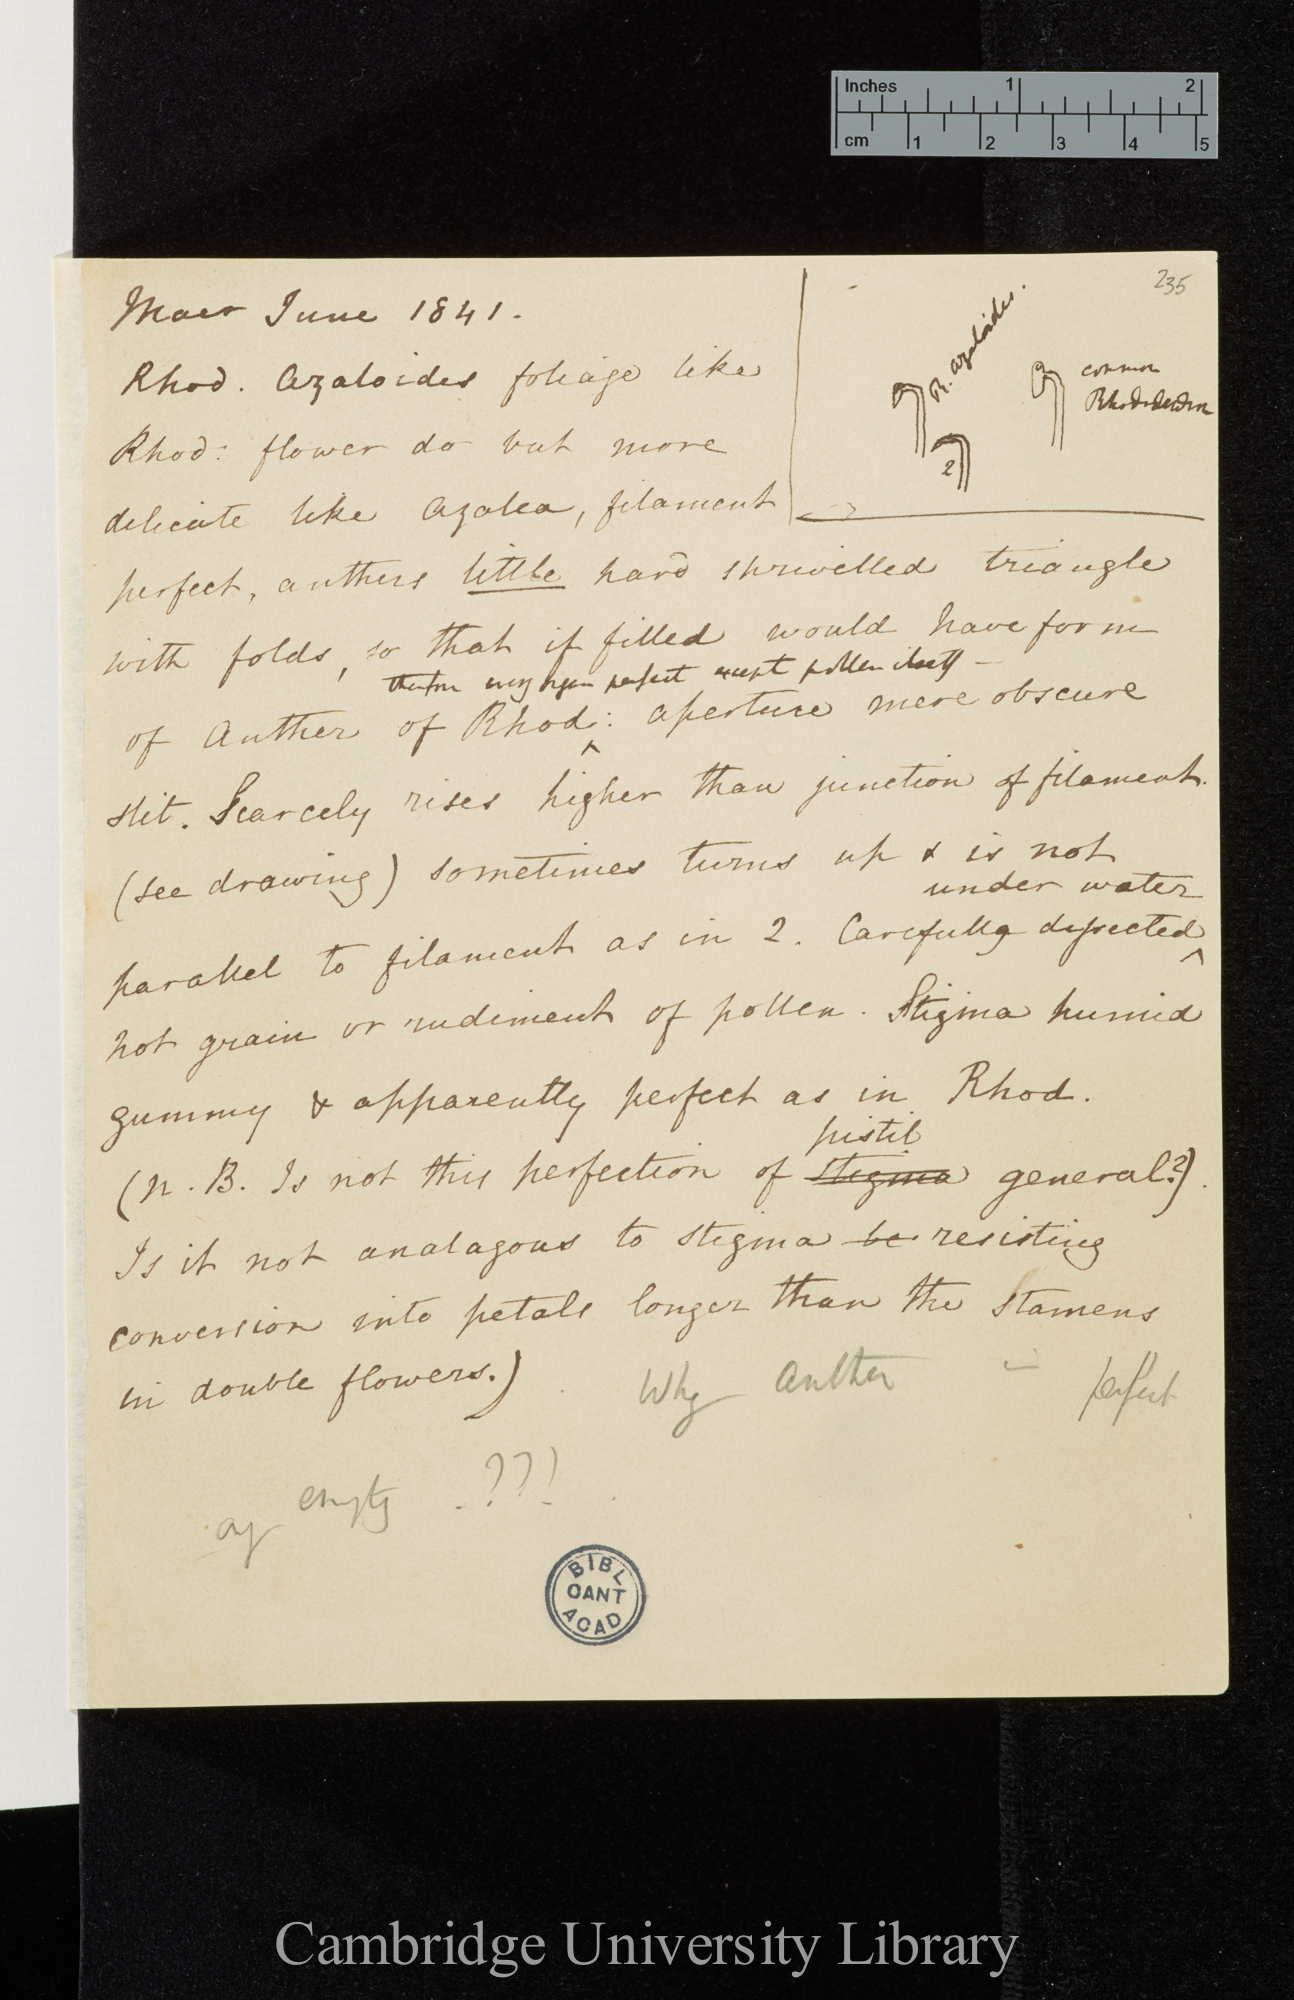 Inches 1 2
cm 1 2 3 4 5
235
Maer June 1841.
Rhod. Azaloides foliage like
Rhod: flower do but more
delicate like Azalea, filament
R. azaloides.
common
Rhododendron
2
perfect, anthers little hard shrivelled triangle
with folds, so that if filled would have form
therefore every organ perfect except pollen itself —
of Anther of Rhod: aperture mere obscure
slit. Scarcely rises higher than junction of filament.
(see drawing) sometimes turns up & is not
under water
parallel to filament as in 2. Carefully dissected
not grain or rudiment of pollen. Stigma humid
gummy & apparently perfect as in Rhod.
pistil
(N.B. Is not this perfection of stigma general?).
Is it not analagous to stigma be resisting
conversion into petals longer than the stamens
in double flowers.) Why Anther perfect
empty ???
BIBL
CANT
ACAD
Cambridge University Library